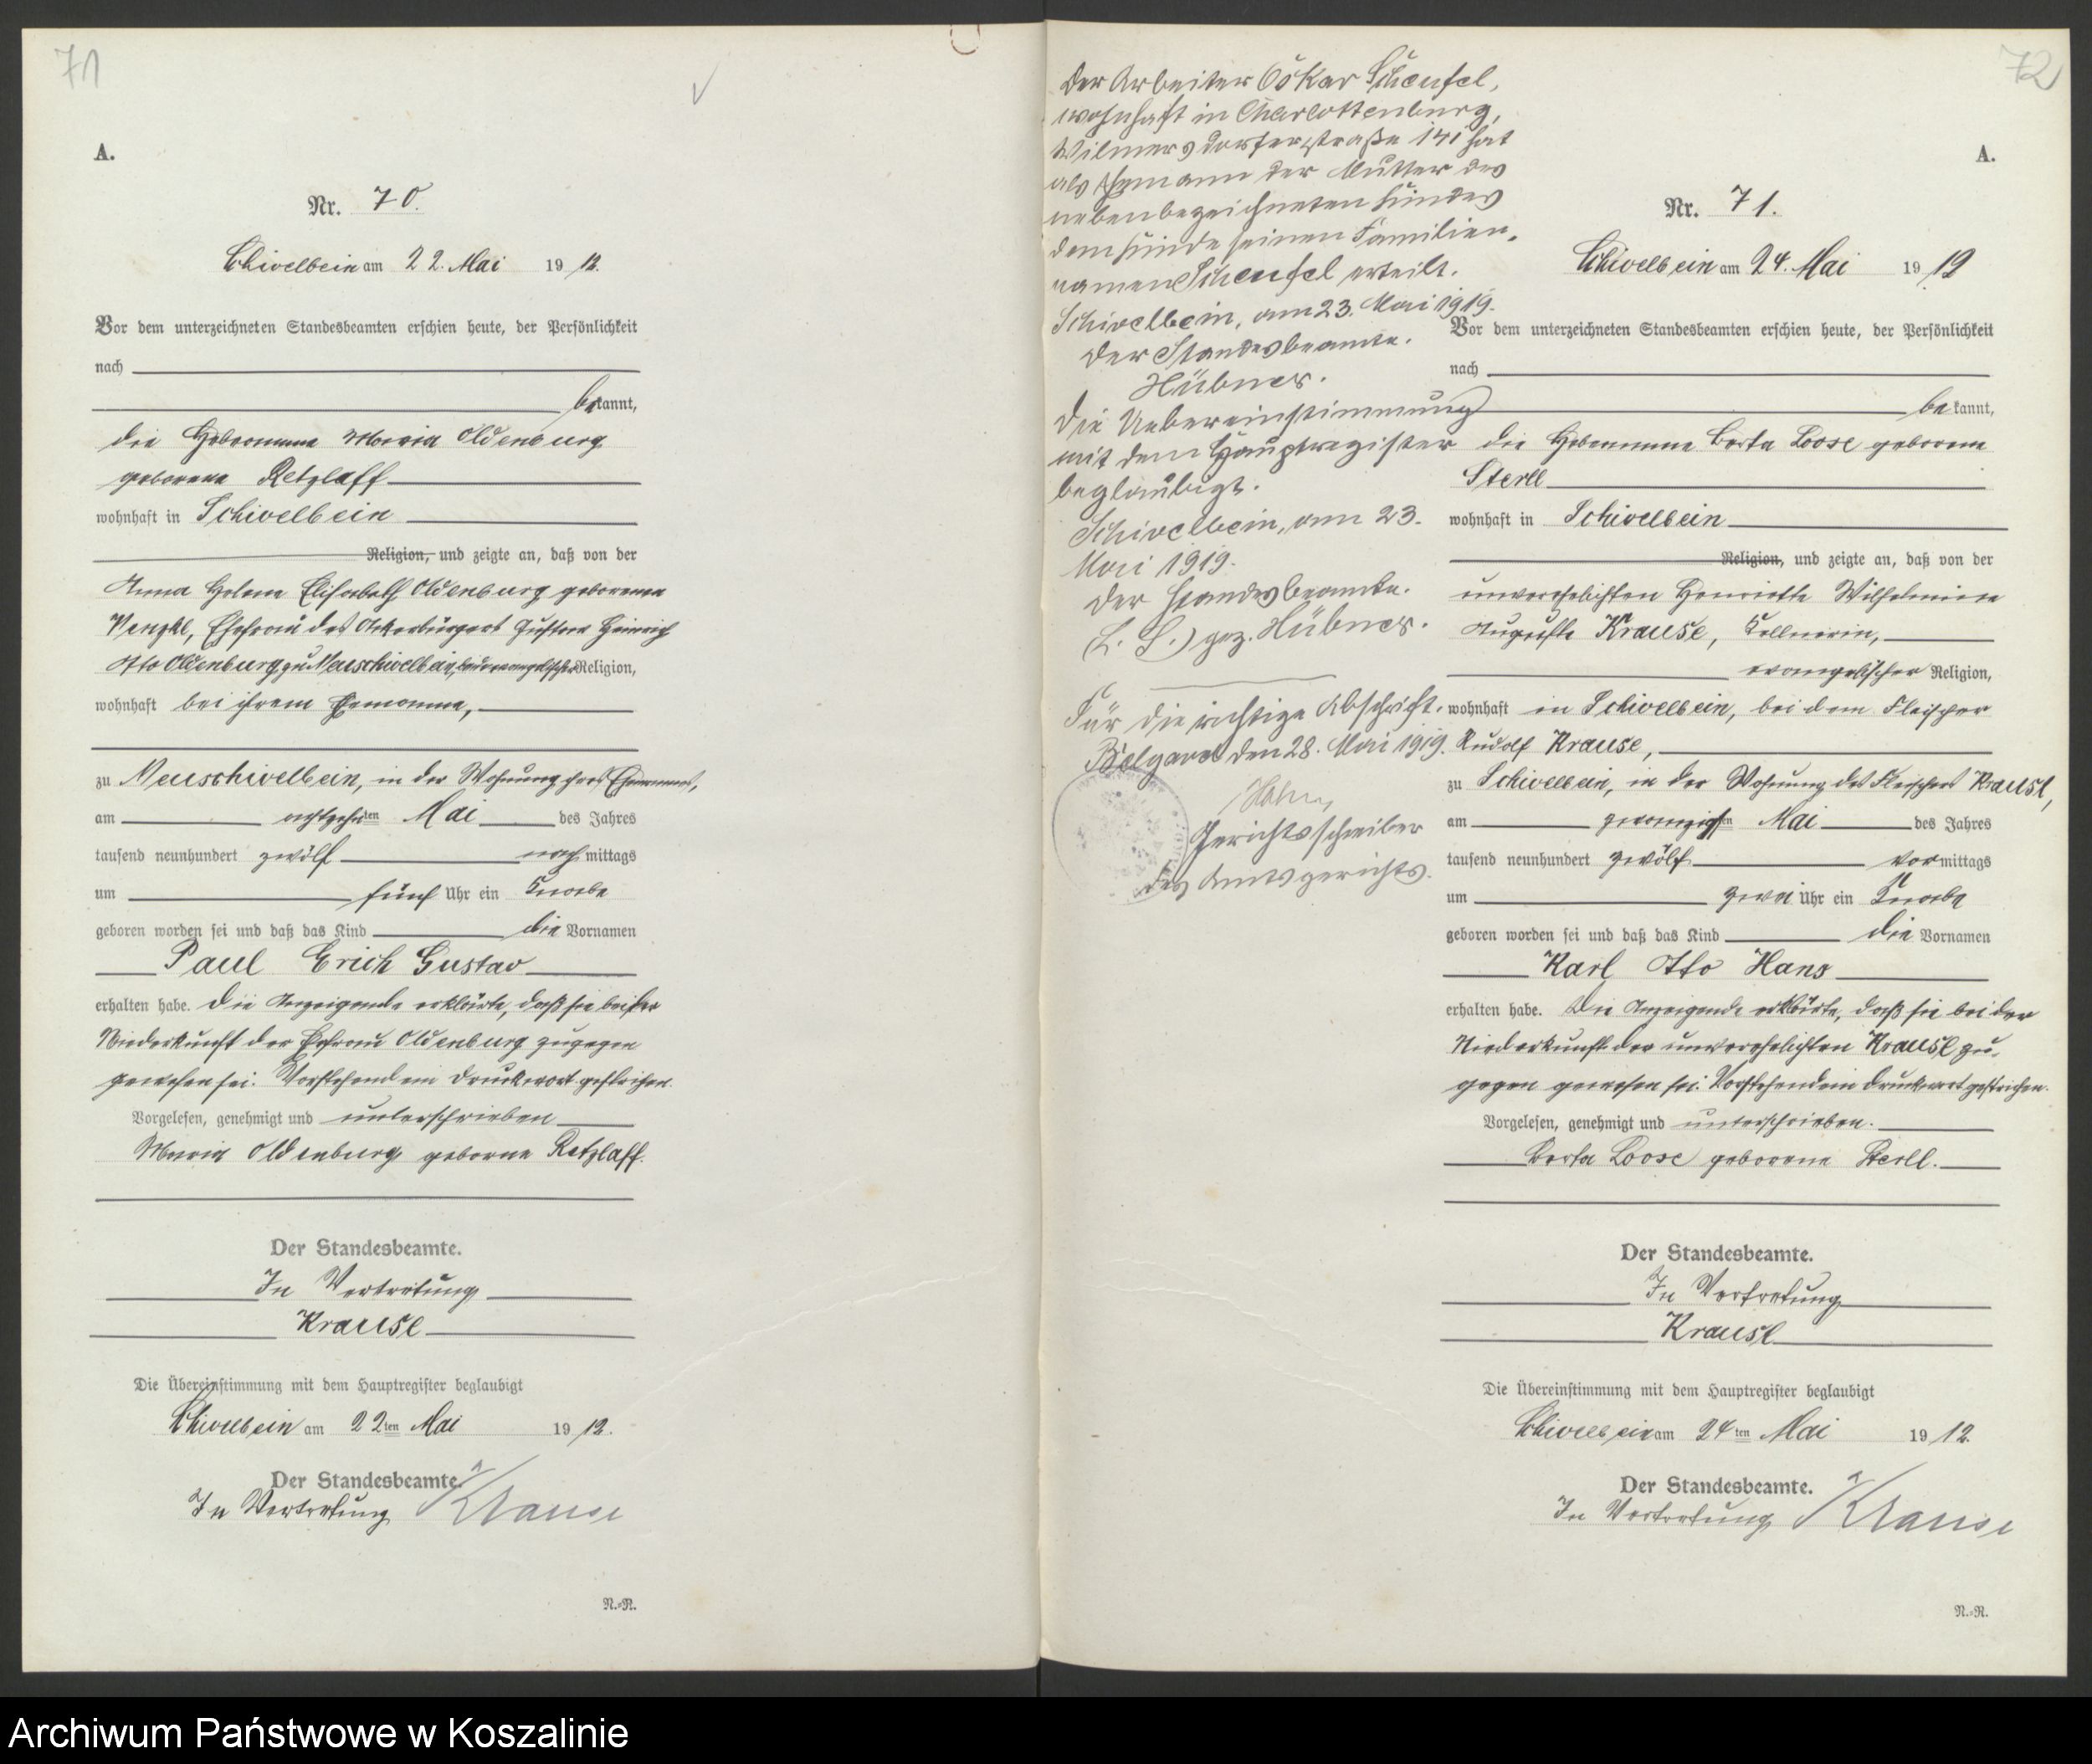 71
A.
Nr. 70.
Schivelbein am 22. Mai 1912.
Vor dem unterzeichneten Standesbeamten erschien heute, der Persönlichkeit
nach
bekannt,
die Hebamme Maria Oldenburg
geborene Retzlaff
wohnhaft in Schivelbein
Religion, und zeigte an, daß von der
Anna Helene Elisabeth Oldenburg geborenen
Venzke, Ehefrau des Ackerbürgers Gustav Heinrich
Otto Oldenburg zu Neuschivelbein, beide evangelischer Religion,
wohnhaft bei ihrem Ehemanne,
zu Neuschivelbein, in der Wohnung ihres Ehemannes,
am achtzehnten Mai des Jahres
tausend neunhundert zwölf nachmittags
um fünf Uhr ein Knabe
geboren worden sei und daß das Kind die Vornamen
Paul Erich Gustav
erhalten habe. Die Anzeigende erklärte, daß sie bei der
Niederkunft der Ehefrau Oldenburg zugegen
gewesen sei. Vorstehend ein Druckwort gestrichen.
Vorgelesen, genehmigt und unterschrieben
Maria Oldenburg geborne Retzlaff.
Der Standesbeamte.
In Vertretung
Krause
Die Übereinstimmung mit dem Hauptregister beglaubigt
Schivelbein am 22ten Mai 1912.
Der Standesbeamte.
In Vertretung Krause
N.=R.
72
Der Arbeiter Oskar Scheufel,
wohnhaft in Charlottenburg,
Wilmersdorferstraße 141 hat
als Ehemann der Mutter des
nebenbezeichneten Kindes
dem Kinde seinen Familien-
namen Scheufel erteilt.
Schivelbein, am 23. Mai 1919.
Der Standesbeamte.
Hübner.
Die Uebereinstimmung
mit dem Hauptregister
beglaubigt.
Schivelbein, am 23.
Mai 1919.
Der Standesbeamte.
(L. S.) gez. Hübner.
Für die richtige Abschrift.
Belgard den 28. Mai 1919.
Hahn,
Gerichtsschreiber
des Amtsgerichts.
A.
Nr. 71.
Schivelbein am 24. Mai 1912
Vor dem unterzeichneten Standesbeamten erschien heute, der Persönlichkeit
nach
bekannt,
die Hebamme Berta Loose geborene
Sterll
wohnhaft in Schivelbein
Religion, und zeigte an, daß von der
unverehelichten Henriette Wilhelmine
Auguste Krause, Kellnerin,
evangelischer Religion,
wohnhaft in Schivelbein, bei dem Fleischer
Rudolf Krause,
zu Schivelbein, in der Wohnung des Fleischers Krause,
am zwanzigsten Mai des Jahres
tausend neunhundert zwölf vormittags
um zwei Uhr ein Knabe
geboren worden sei und daß das Kind die Vornamen
Karl Otto Hans
erhalten habe. Die Anzeigende erklärte, daß sie bei der
Niederkunft der unverehelichten Krause zu-
gegen gewesen sei. Vorstehend ein Druckwort gestrichen.
Vorgelesen, genehmigt und unterschrieben.
Berta Loose geborene Sterll.
Der Standesbeamte.
In Vertretung
Krause
Die Übereinstimmung mit dem Hauptregister beglaubigt
Schivelbein am 24ten Mai 1912.
Der Standesbeamte.
In Vertretung Krause
N.=R.
Archiwum Państwowe w Koszalinie